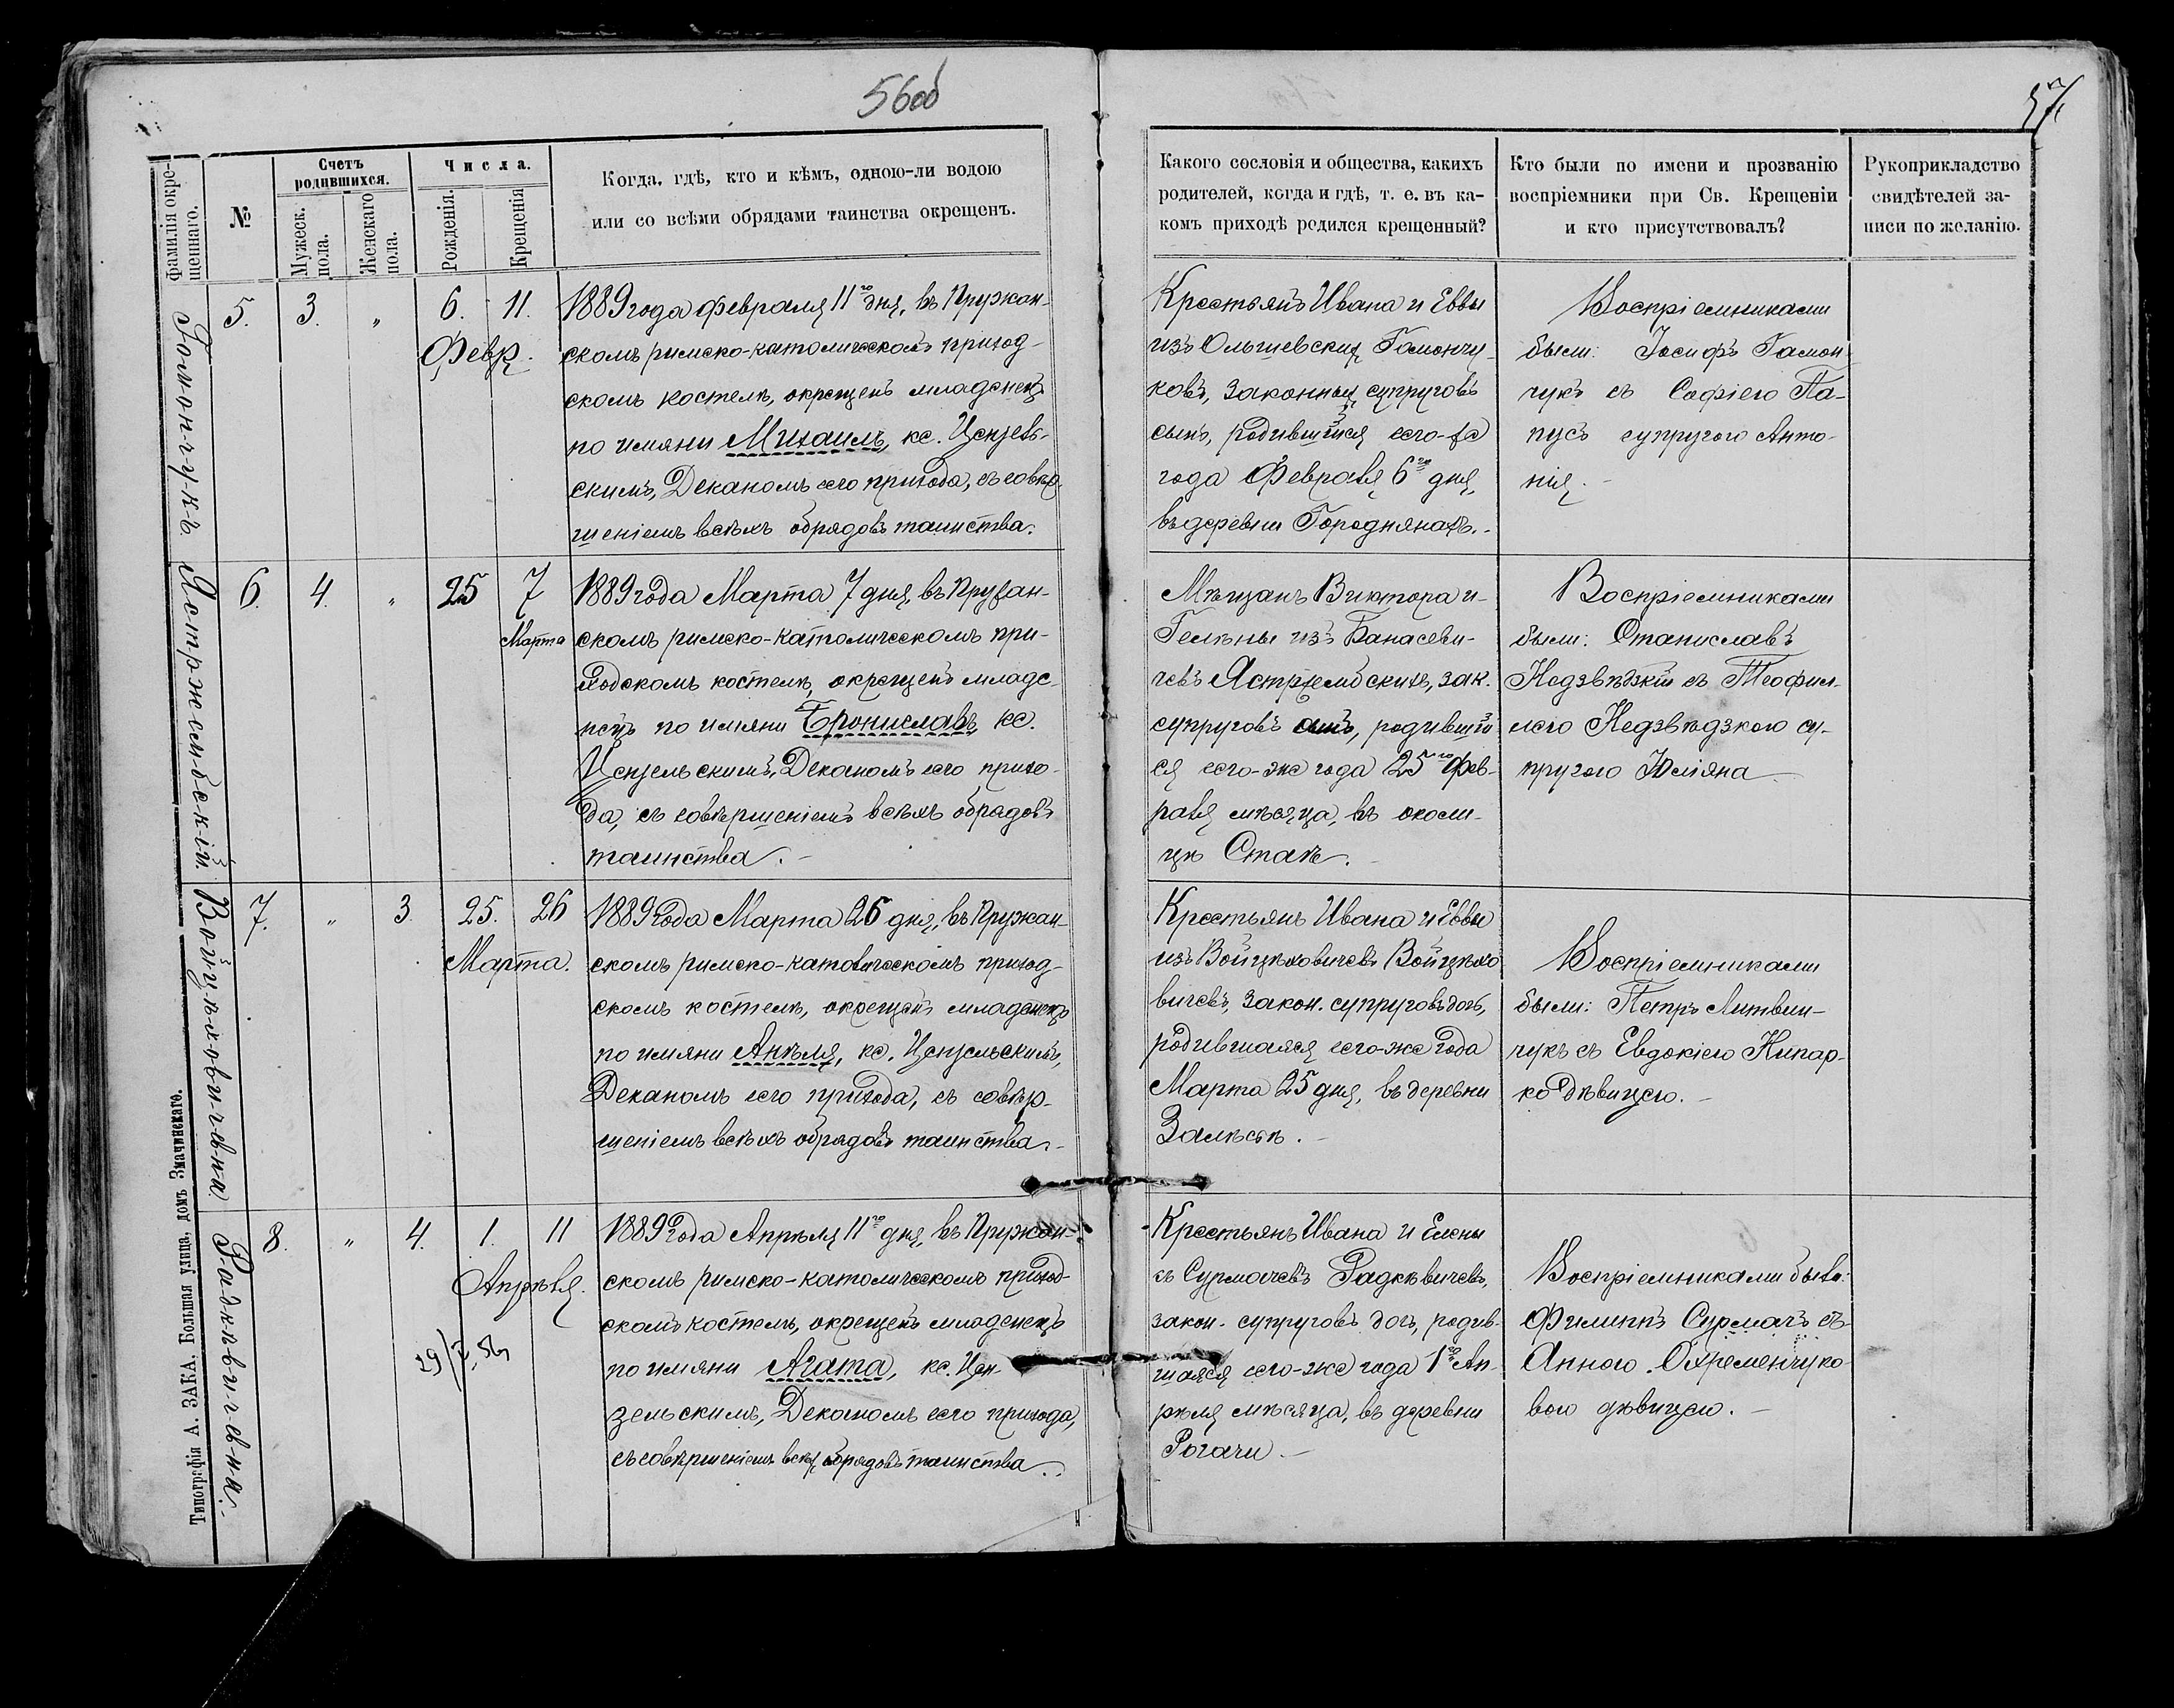 56об
57
Фамилія окре-
щеннаго.
№
Счетъ
родившихся.
Мужеск.
пола.
Женскаго
пола.
Числа.
Рожденія.
Крещенія
Когда, гдѣ, кто и кѣмъ, одною-ли водою
или со всѣми обрядами таинства окрещенъ.
Какого сословія и общества, какихъ
родителей, когда и гдѣ, т. е. въ ка-
комъ приходѣ родился крещенный?
Кто были по имени и прозванію
воспріемники при Св. Крещеніи
и кто присутствовалъ?
Рукоприкладство
свидѣтелей за-
писи по желанію.
Гомончукъ
5. 3. „ 6. 11.
Февр.
1889 года Февраля 11го дня, въ Пружан-
скомъ римско-католическомъ приход-
скомъ костелѣ, окрещенъ младенецъ
по имяни Михаилъ, кс. Цензель-
скимъ, Деканомъ сего прихода, съ совер-
шеніемъ всѣхъ обрядовъ таинства.
Крестьянъ Ивана и Еввы
изъ Ольшевскихъ Гомончу-
ковъ, законныхъ супруговъ
сынъ, родившійся сего-же
года Февраля 6го дня,
въ деревни Городнянахъ.-
Воспріемниками
были: Іосифъ Гамон-
чукъ съ Софіею Па-
пусъ супругою Анто-
нія.-
Ястржембскій.
6. 4. „ 25 7
Марта
1889 года Марта 7 дня, въ Пружан-
скомъ римско-католическомъ при-
ходскомъ костелѣ, окрещенъ младе-
нецъ по имяни Брониславъ, кс.
Цензельскимъ, Деканомъ сего прихо-
да, съ совѣршеніемъ всѣхъ обрядовъ
таинства.-
Мѣщанъ Виктора и
Гелѣны изъ Банасеви-
чевъ Ястржембскихъ, зак.
супруговъ сынъ, родившій-
ся сего-же года 25го Фев-
раля мѣсяца, въ околи-
цѣ Стакѣ.-
Воспріемниками
были: Станиславъ
Недзвѣдзкій съ Теофил-
лею Недзвѣдзкою су-
пругою Юліяна
Войцѣховичевна
7. „ 3. 25. 26
Марта.
1889 года Марта 26 дня, въ Пружан-
скомъ римско-католическомъ приход-
скомъ костелѣ, окрещенъ младенецъ
по имяни Анѣля, кс. Цензельскимъ,
Деканомъ сего прихода, съ совѣр-
шеніемъ всѣхъ обрядовъ таинства.-
Крестьянъ Ивана и Еввы
изъ Войцѣховичевъ Войцѣхо-
вичевъ, закон. супруговъ дочь,
родившаяся сего-же года
Марта 25 дня, въ деревни
Залѣсѣ.-
Воспріемниками
были: Петръ Литвин-
чукъ съ Евдокіею Нипар-
ко дѣвицею.-
Радкѣвичевна.
8. „ 4. 1. 11
Апрѣля.
1889 года Апрѣля 11го дня, въ Пружан-
скомъ римско-католическомъ приход-
скомъ костелѣ, окрещенъ младенецъ
по имяни Агата, кс. Цен-
зельскимъ, Деканомъ сего прихода,
съ совѣршеніемъ всѣхъ обрядовъ таинства.
Крестьянъ Ивана и Елены
съ Сурмачевъ Радкѣвичевъ,
закон. супруговъ дочь, родив-
шаяся сего-же года 1го Ап-
рѣля мѣсяца, въ деревни
Рогачи.-
Воспріемниками были:
Филиппъ Сурмачъ съ
Анною Охременчуко-
вою дѣвицею.-
Типографія А. ЗАКА, Большая улица, домъ Значинскаго.